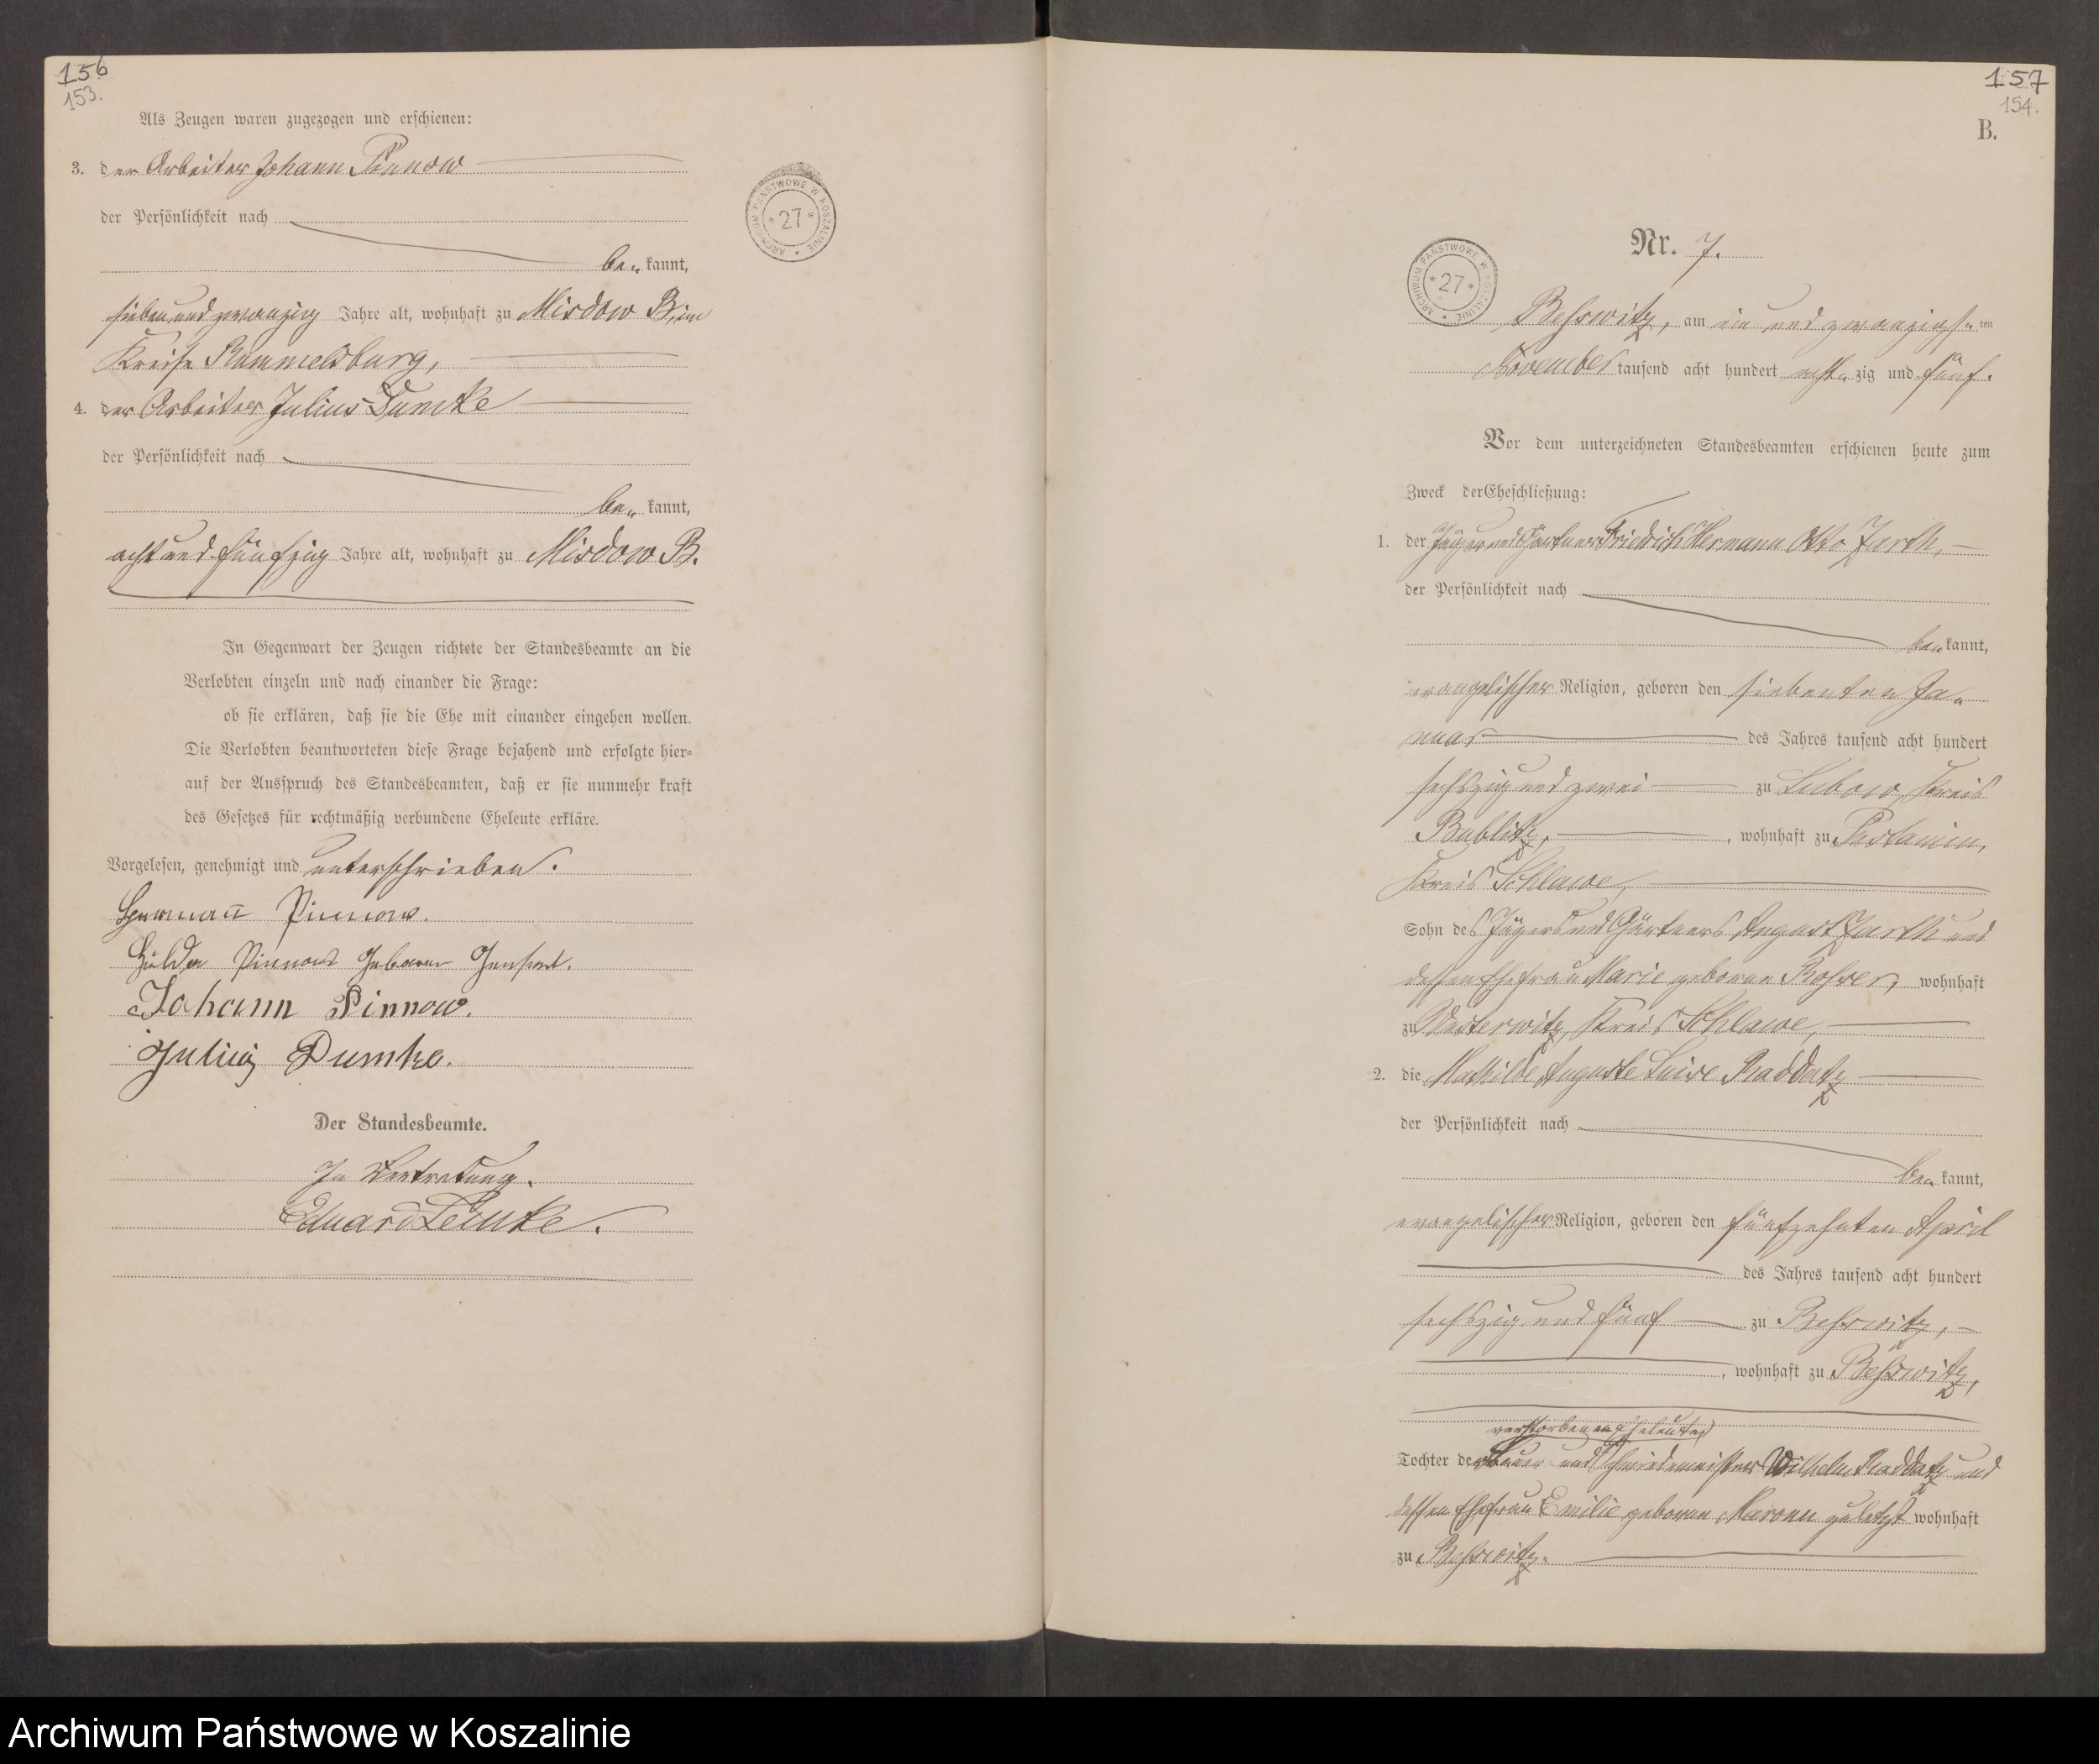 156
153.
Als Zeugen waren zugezogen und erschienen:
3. der Arbeiter Johann Pinnow
der Persönlichkeit nach
be„ kannt,
siebenundzwanzig Jahre alt, wohnhaft zu Misdow B, im
Kreise Rummelsburg,
4. der Arbeiter Julius Dumcke
der Persönlichkeit nach
be„ kannt,
achtundfünfzig Jahre alt, wohnhaft zu Misdow B.
In Gegenwart der Zeugen richtete der Standesbeamte an die
Verlobten einzeln und nach einander die Frage:
ob sie erklären, daß sie die Ehe mit einander eingehen wollen.
Die Verlobten beantworteten diese Frage bejahend und erfolgte hier=
auf der Ausspruch des Standesbeamten, daß er sie nunmehr kraft
des Gesetzes für rechtmäßig verbundene Eheleute erkläre.
Vorgelesen, genehmigt und unterschrieben.
Hermann Pinnow.
Hulda Pinnow Geboren
Johann Pinnow.
Julius Dumke.
Der Standesbeamte.
In Vertretung.
Eduard Lemke.
ARCHIWUM PAŃSTWOWE W KOSZALINIE
* 27 *
157
154.
B.
ARCHIWUM PAŃSTWOWE W KOSZALINIE
* 27 *
Nr. 7.
Beßwitz, am ein und zwanzigst„ ten
November tausend acht hundert acht„ zig und fünf.
Vor dem unterzeichneten Standesbeamten erschienen heute zum
Zweck der Eheschließung:
1. der Jäger und Gärtner Friedrich Hermann Otto Zarth,
der Persönlichkeit nach
be„ kannt,
evangelischer Religion, geboren den siebenten Ja„
nuar des Jahres tausend acht hundert
sechszig und zwei zu Lubow, Kreis
Bublitz, wohnhaft zu
Kreis Schlawe,
Sohn des Jägers und Gärtners August Zarth und
dessen Ehefrau Marie geboren wohnhaft
zu Kreis Schlawe,
2. die Mathilde Auguste Luise Raddatz
der Persönlichkeit nach
be„ kannt,
evangelischer Religion, geboren den fünfzehnten April
des Jahres tausend acht hundert
sechszig und fünf zu Beßwitz,
wohnhaft zu Beßwitz,
verstorbenen Eheleute
Tochter der und Schmiedemeister Wilhelm Raddatz und
dessen Ehefrau Emilie geboren zuletzt wohnhaft
zu Beßwitz.
Archiwum Państwowe w Koszalinie